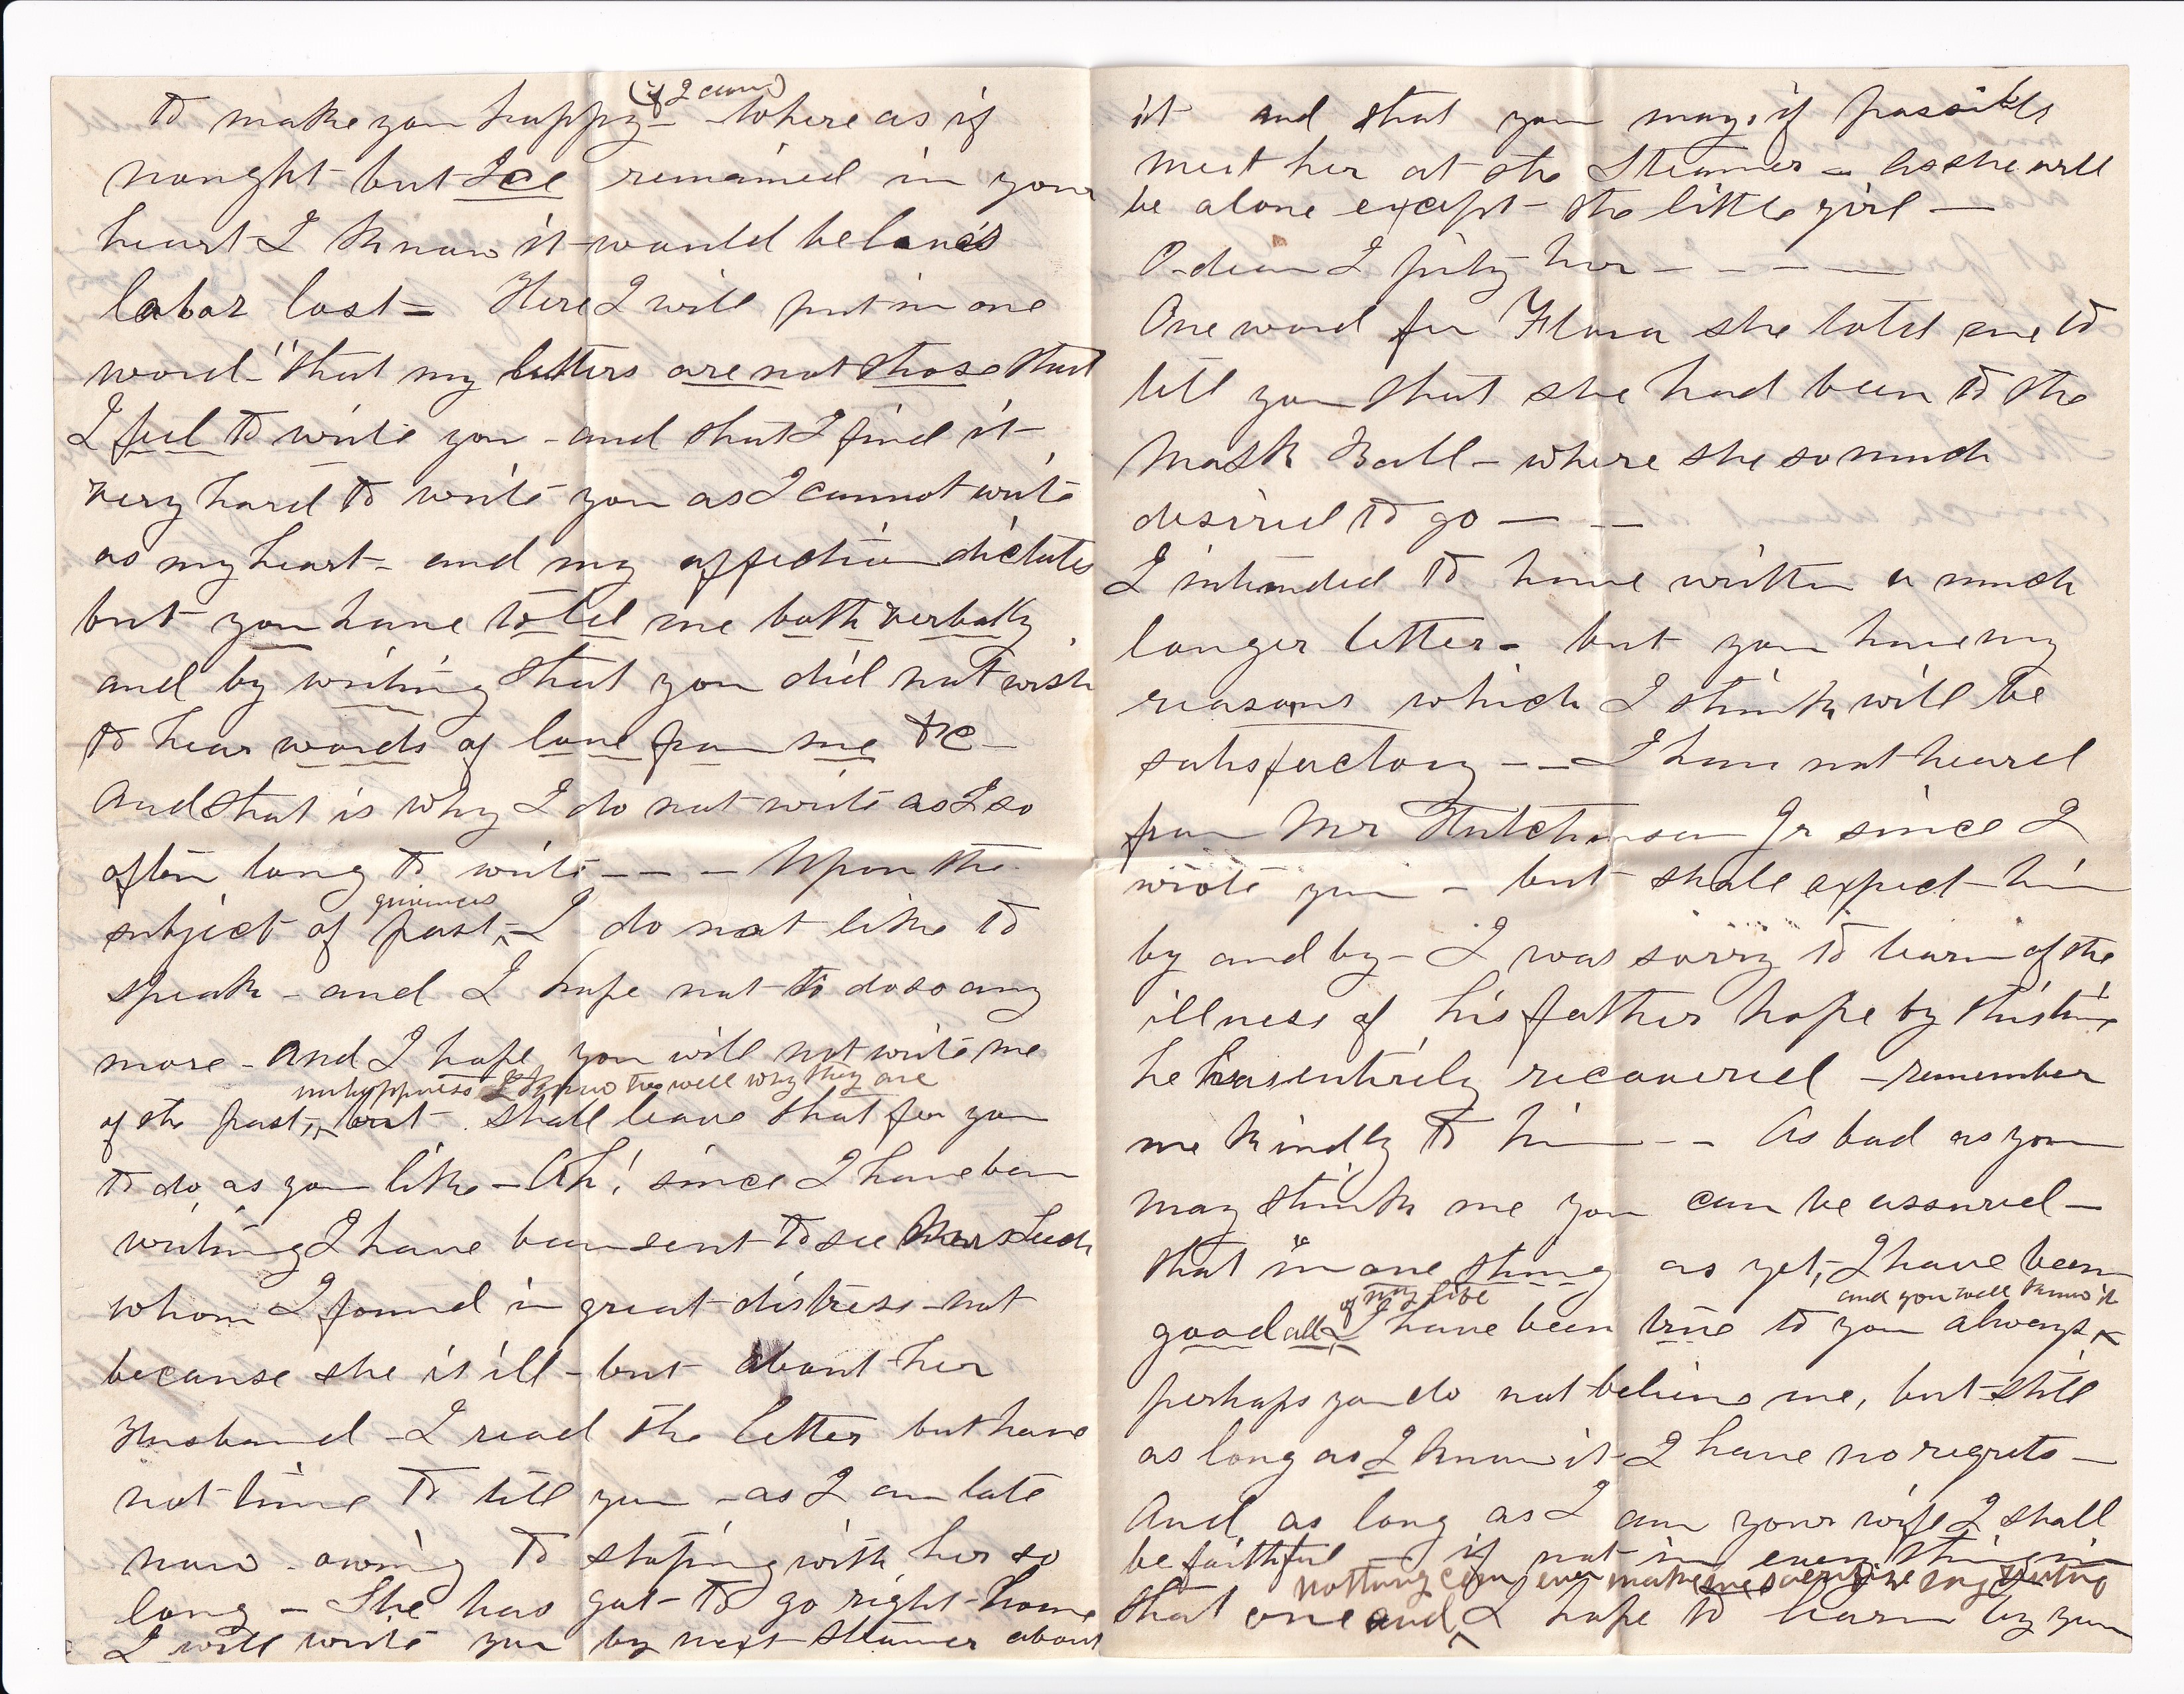 (if I can)
to make you happy – Where as if
nought but Ice remained in your
heart I know it would be love's
labor lost – Here I will put in one
word – "that my letters are not those that
I feel to write you – and that I find it
very hard to write you as I cannot write
as my heart – and my affection dictates
but you have told me both verbally
and by writing that you did not wish
to hear words of love from me &c –
And that is why I do not write as I so
often long to write – – – Upon the
grievances
subject of past, I do not like to
speak – and I hope not to do so any
more – And I hope you will not write me
unhappiness I know too well why they are
of the past, but shall leave that for you
to do, as you like – Ah! since I have been
writing I have been sent to see Mrs Leach
whom I found in great distress – not
because she is ill – but about her
Husband – I read the letter but have
not time to tell you – as I am late
now – owing to stoping with her so
long – She has got to go right home
I will write you by next steamer about
it and that you may, if possible
meet her at the Steamer – as she will
be alone except the little girl –
O dear I pity her – – – –
One word for Flora she told me to
tell you that she had been to the
Mask Ball – where she so much
desired to go – –
I intended to have written a much
longer letter – but you have my
reasons which I think will be
satisfactory – – I have not heard
from Mr Hutchinson Jr since I
wrote you – but shall expect him
by and by – I was sorry to learn of the
illness of his father hope by this time
he has entirely recovered – remember
me kindly to him – – As bad as you
may think me you can be assured –
that in "one thing as yet, I have been
of my life and you well know it
good all I have been true to you always
perhaps you do not believe me, but still
as long as I know it I have no regrets –
And, as long as I am your wife I shall
be faithful – if not in every thing in
nothing can ever make me
that one and I hope to learn by your